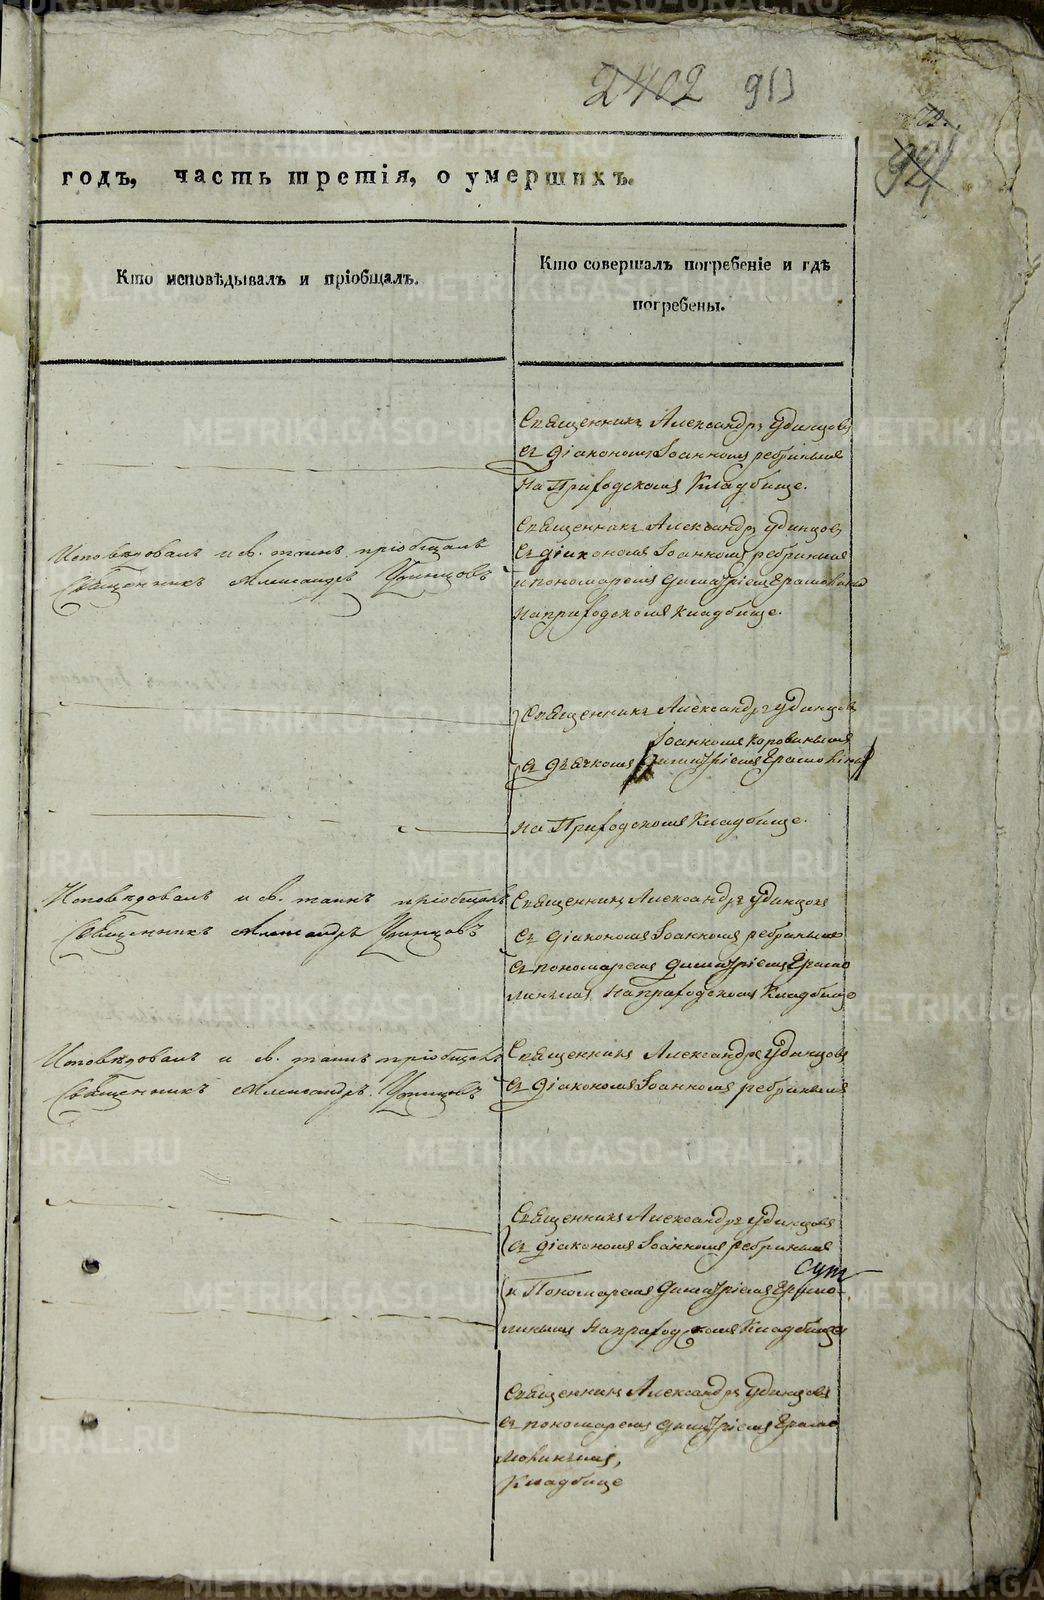 2402 913
94
годъ, часть третія, о умершихъ.
Кто исповѣдывалъ и пріобщалъ.
Кто совершалъ погребеніе и гдѣ
погребены.
Священникъ Александръ Удинцовъ
съ діакономъ Іоанномъ Ребринымъ
На Приходскомъ Кладбище.
Исповѣдовалъ и св. таинъ пріобщалъ
Священникъ Александръ Удинцовъ
Священникъ Александръ Удинцовъ
съ діакономъ Іоанномъ Ребринымъ
и пономаремъ Димитріемъ
на приходскомъ кладбище.
Священникъ Александръ Удинцовъ
Іоанномъ Коровинымъ
съ дьячкомъ Димитріемъ
на Приходскомъ Кладбище.
Исповѣдовалъ и св. таинъ пріобщалъ
Священникъ Александръ Удинцовъ
Священникъ Александръ Удинцовъ
съ діакономъ Іоанномъ Ребринымъ
съ пономаремъ Димитріемъ
на приходскомъ Кладбище
Исповѣдовалъ и св. таинъ пріобщалъ
Священникъ Александръ Удинцовъ
Священникъ Александръ Удинцовъ
съ діакономъ Іоанномъ Ребринымъ
Священникъ Александръ Удинцовъ
съ діакономъ Іоанномъ Ребринымъ
и Пономаремъ Димитріемъ
на приходскомъ Кладбище
Священникъ Александръ Удинцовъ
съ пономаремъ Димитріемъ
Кладбище
METRIKI.GASO-URAL.RU